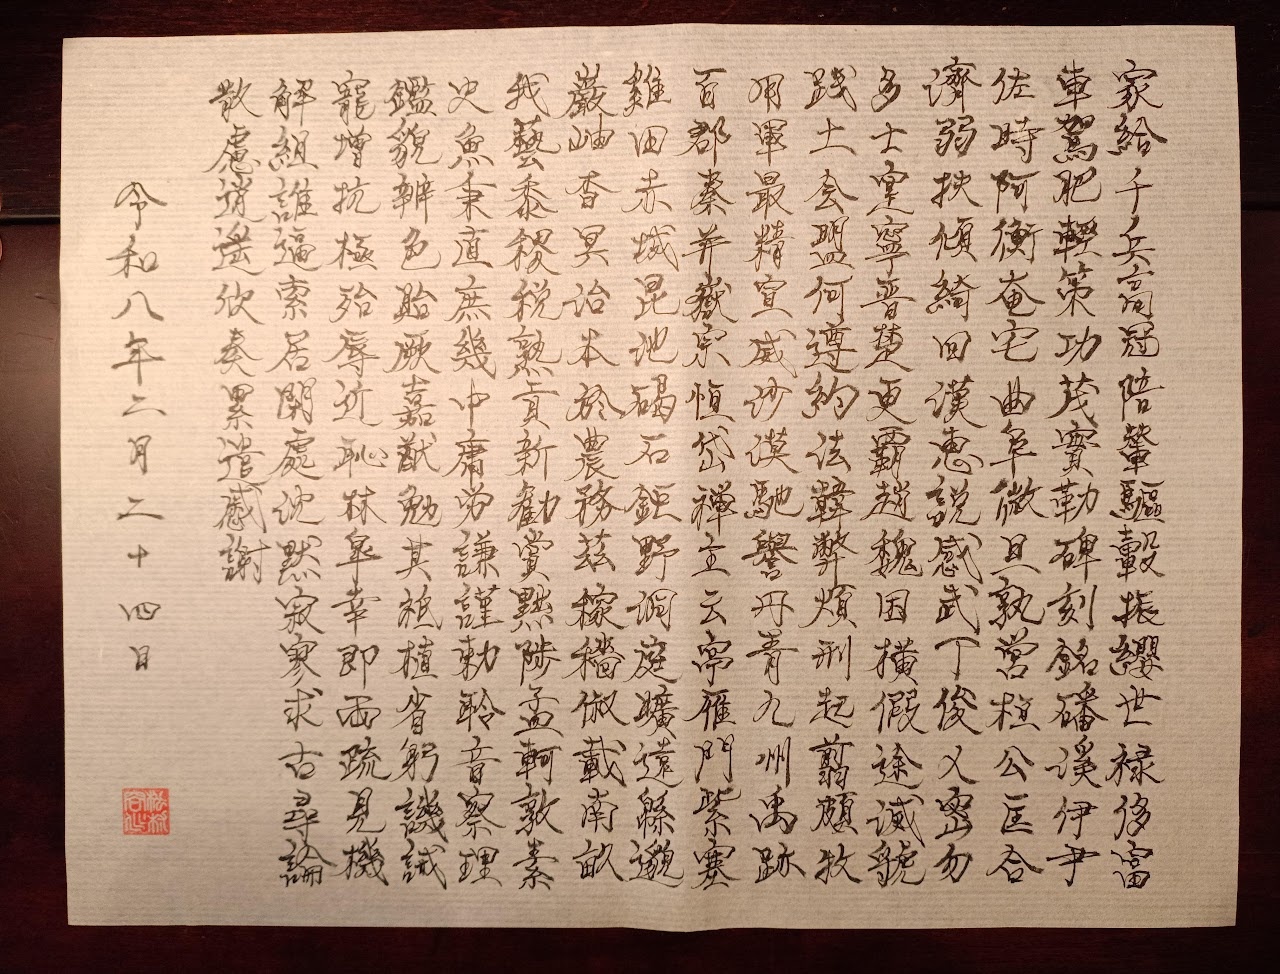 家給千兵高冠陪輦驅轂振纓世禄侈富
車駕肥輕策功茂實勒碑刻銘磻溪伊尹
佐時阿衡奄宅曲阜微旦孰營桓公匡合
濟弱扶傾綺回漢惠説感武丁俊乂密勿
多士寔寧晉楚更霸趙魏困横假途滅虢
踐土会盟何遵約法韓弊煩刑起翦頗牧
用軍最精宣威沙漠馳譽丹青九州禹跡
百郡秦并嶽宗恒岱禪主云亭雁門紫塞
雞田赤城昆池碣石鉅野洞庭曠遠緜邈
巖岫杳冥治本於農務茲稼穡俶載南畝
我藝黍稷税熟貢新勸賞黜陟孟軻敦素
史魚秉直庶幾中庸労謙謹勅聆音察理
鑑貌辨色貽厥嘉猷勉其祗植省躬譏誡
寵増抗極殆辱近恥林皐幸即両疏見機
解組誰逼索居閑處沈黙寂寥求古尋論
散慮逍遥欣奏累遣慼謝
令和八年二月二十四日